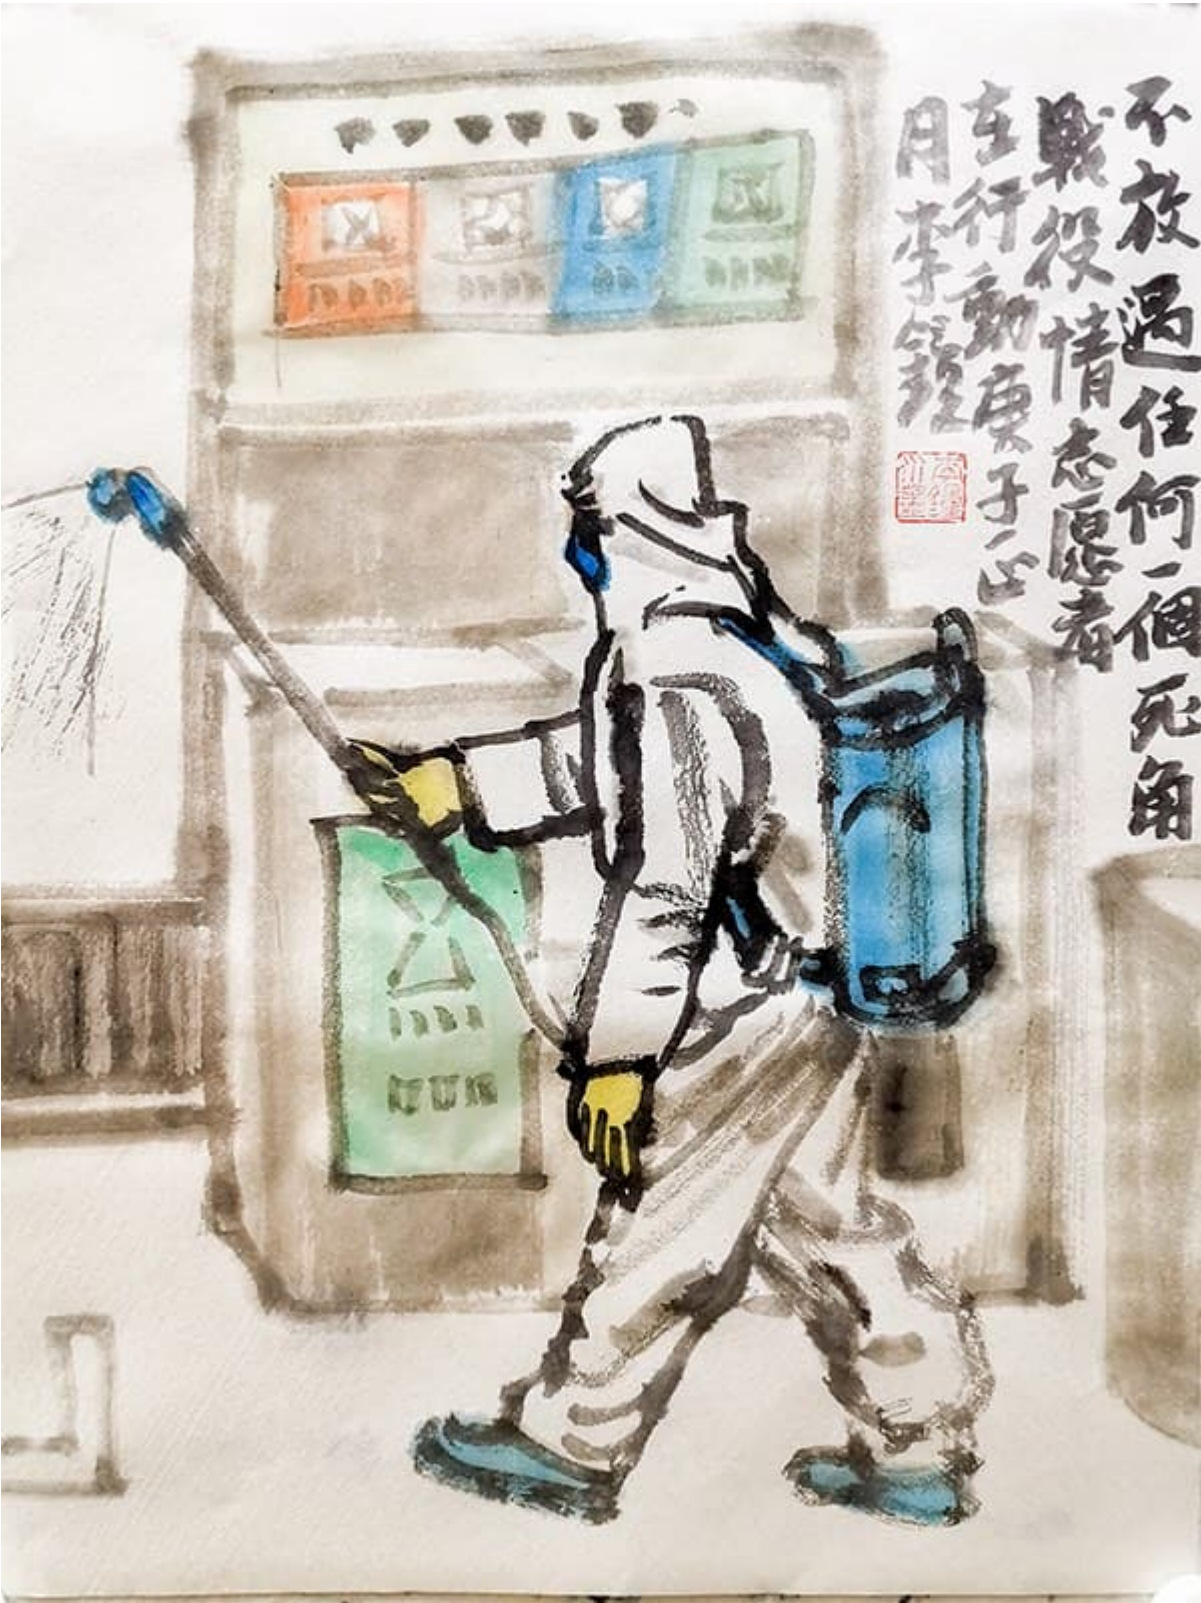 不放過任何一個死角
戰役情志愿者
在行動庚子正
月李鎫